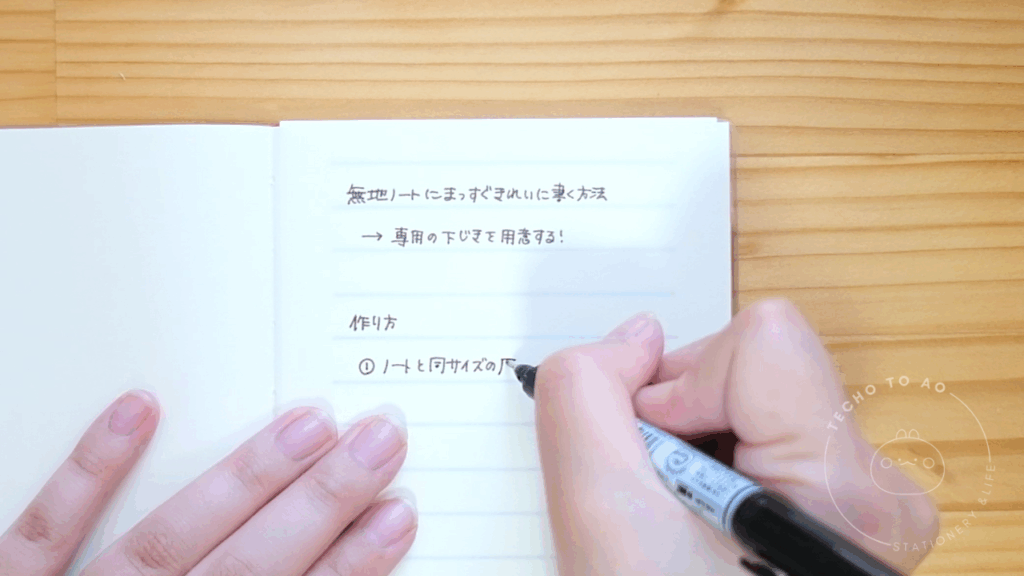 無地ノートにまっすぐきれいに書く方法
→ 専用の下じきを用意する!
作り方
① ノートと同サイズの
TECHO TO AO
STATIONERY & LIFE